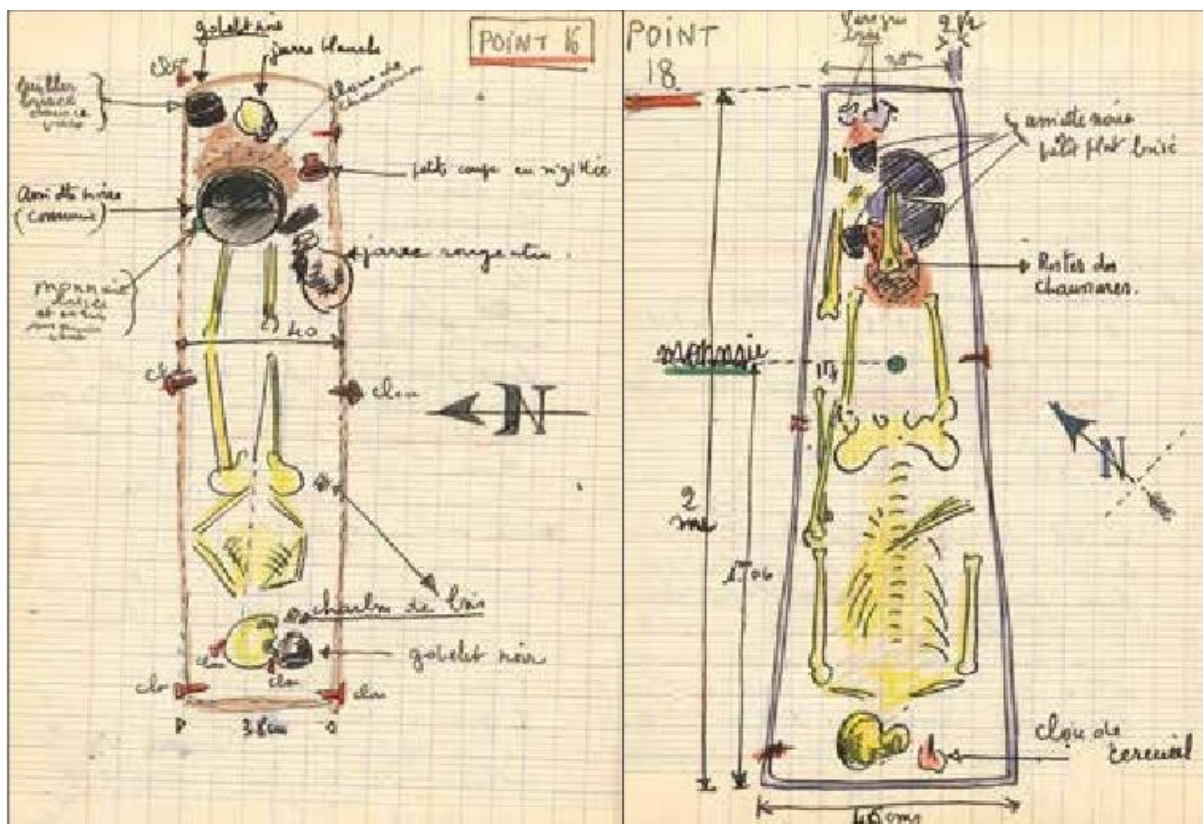 gobelet noir
jarre blanche
POINT 16
clo
clous de
chaussures
petite coupe en sigillée
Assiette noire
(commune)
jarre rougeatre.
monnaie
40
clou
N
charbon de bois
gobelet noir
clou
clo
clo
clou
38cm
POINT
18.
bris
assiette noire
petit plat brisé
Restes des
chaussures.
monnaie
N
2
1m06
clou de
cercueil
46 cms